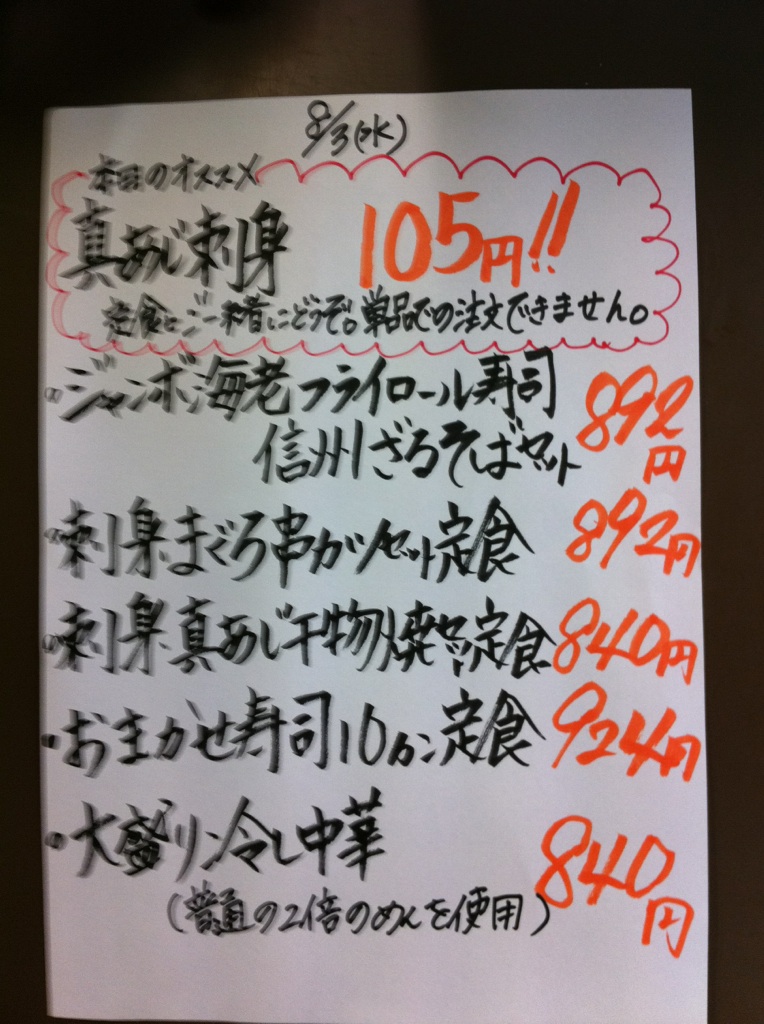 8/3(水)
本日のオススメ
真あじ刺身 105円!!
定食とご一緒にどうぞ。単品での注文できません。
・ジャンボ海老フライロール寿司
信州ざるそばセット 892円
・刺身まぐろ串カツセット定食 892円
・刺身真あじ干物焼セット定食 840円
・おまかせ寿司10カン定食 924円
・大盛り冷し中華 840円
(普通の2倍のめんを使用)